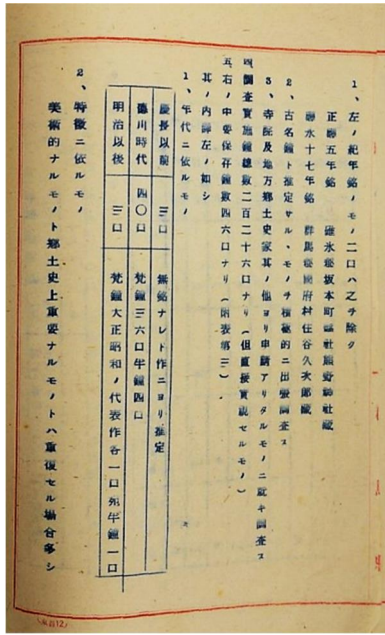 1、左ノ紀年銘ノモノ二口ハ之ヲ除ク
正應五年銘 碓氷郡坂本町縣社熊野神社藏
應永十七年銘 群馬郡國府村住谷久次郎藏
2、古名鐘ト推定サル、モノヲ積極的ニ出張調査ス
3、寺院及地方鄕土史家其ノ他ヨリ申請アリタルモノニ就キ調査ス
四、調査實施鐘總數二百二十六口ナリ(但直接實見セルモノ)
五、右ノ中要保存鐘數四六口ナリ(附表第三)
其ノ內譯左ノ如シ
1、年代ニ依ルモノ
慶長以前 三口 無銘ナレト作ニヨリ推定
德川時代 四〇口 梵鐘三六口半鐘四口
明治以後 三口 梵鐘大正昭和ノ代表作各一口外半鐘一口
2、特徵ニ依ルモノ
美術的ナルモノト鄕土史上重要ナルモノトハ重復セル場合多シ